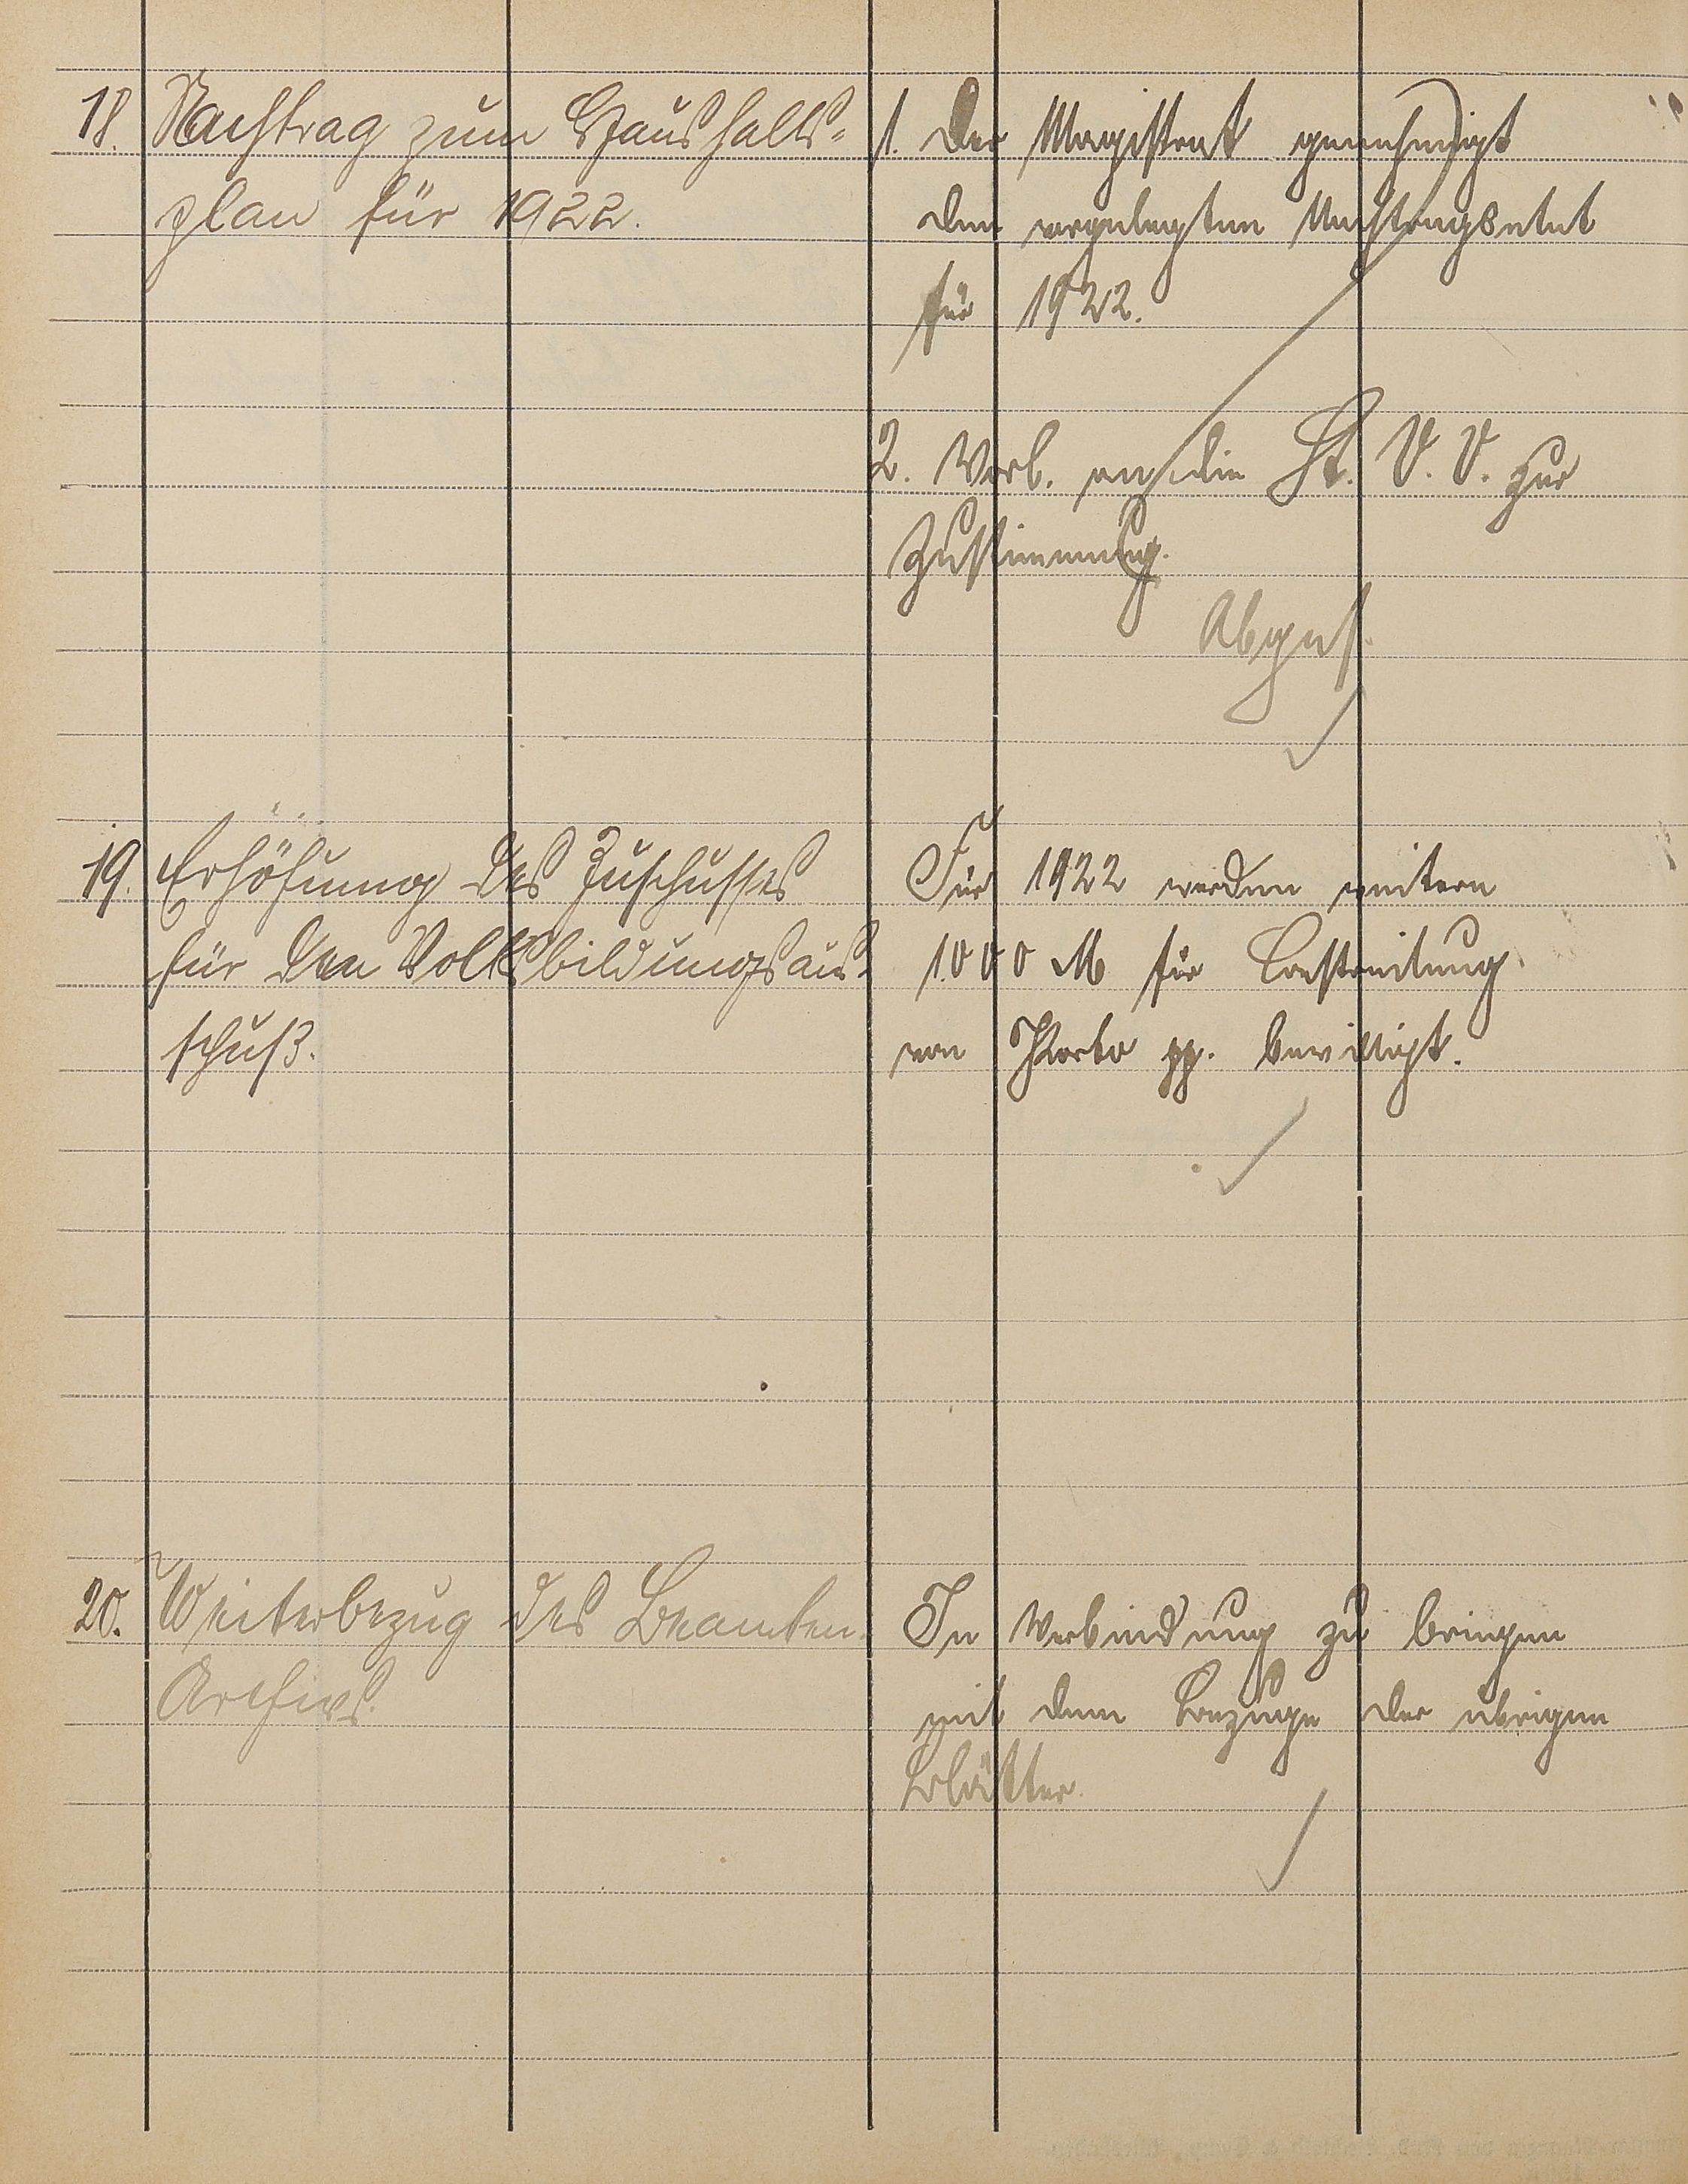 18. Nachtrag zum Haushalts-
plan für 1922.
1. Der Magistrat genehmigt
den vorgelegten Nachtragsetat
für 1922.
2. Vorl. an die St. V. V. zur
Zustimmung.
Abges.
19. Erhöhung des Zuschusses
für den Volksbildungsaus-
schuß.
Für 1922 werden weitere
1000 M für Bestreitung
von Porto pp. bewilligt.
20. Weiterbezug des Beamten-
Archivs.
In Verbindung zu bringen
mit dem Bezuge der übrigen
Blätter.